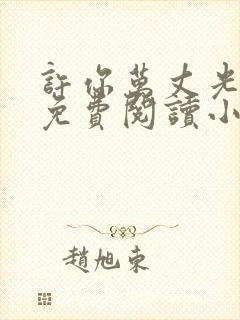 許你萬丈光
免費閱讀小
趙旭東